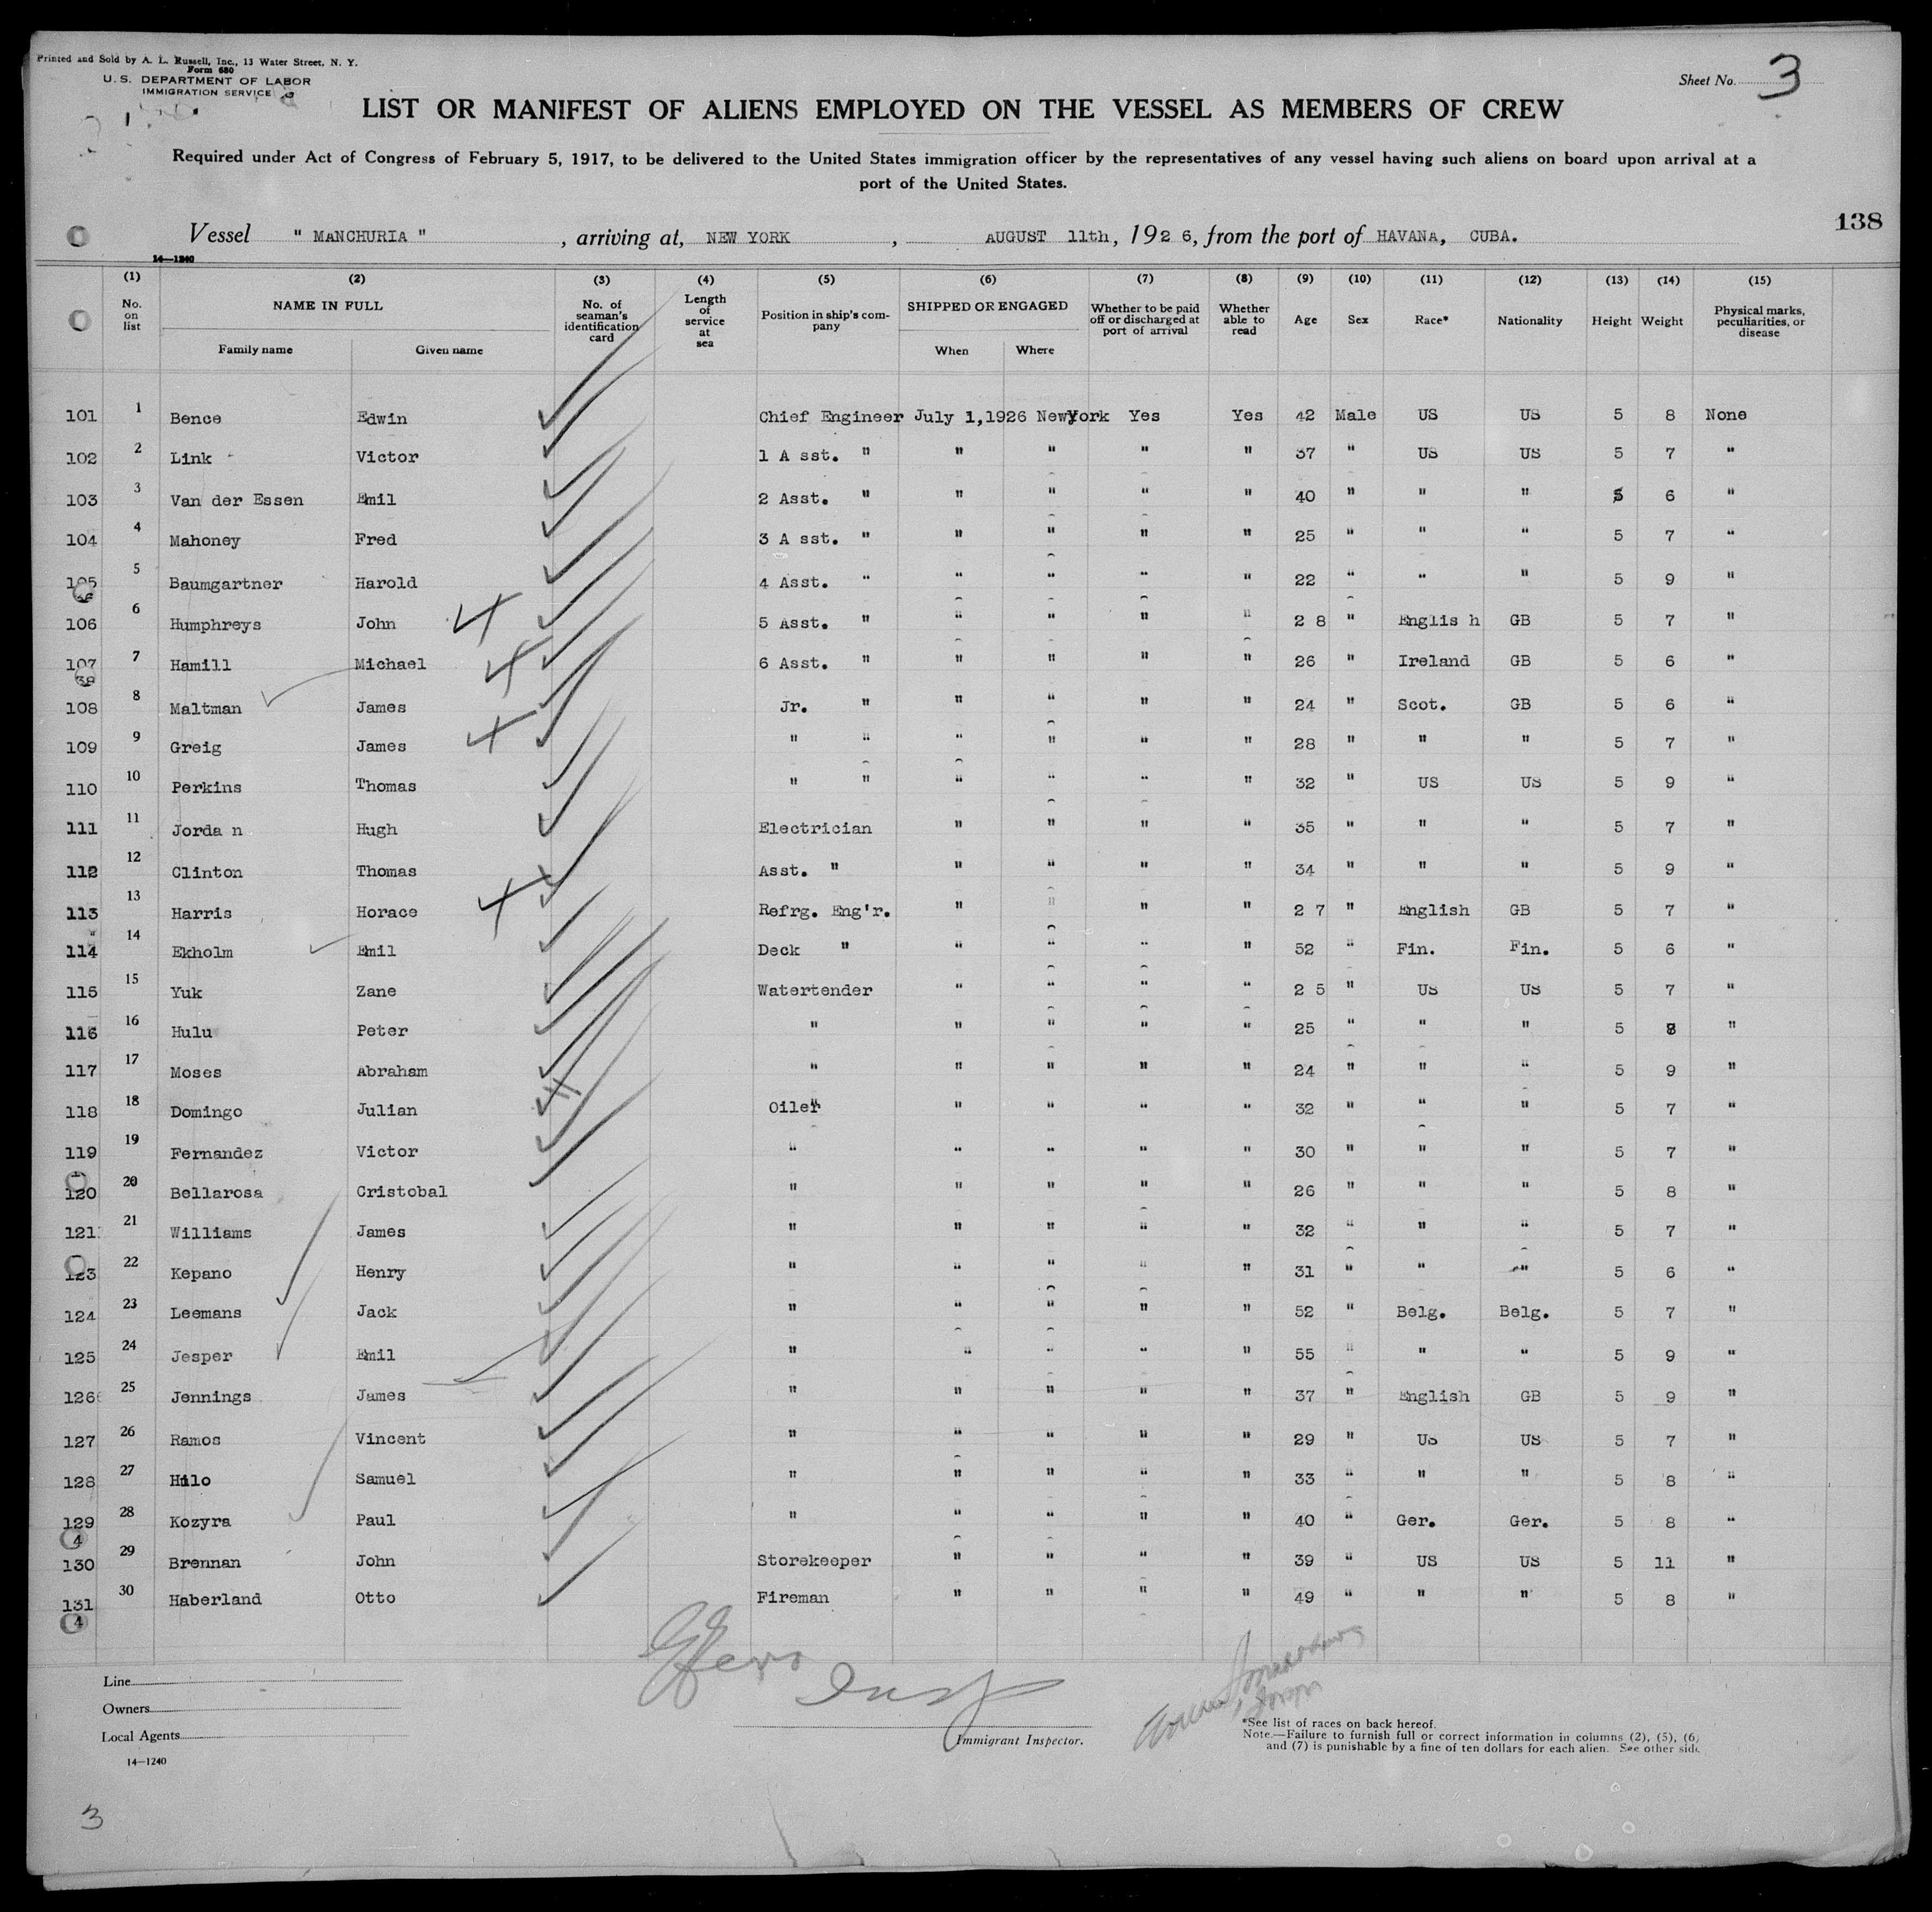 Printed and Sold by A. L. Russell, Inc., 13 Water Street, N. Y.
Form 680
U. S. DEPARTMENT OF LABOR
IMMIGRATION SERVICE
Sheet No. 3
LIST OR MANIFEST OF ALIENS EMPLOYED ON THE VESSEL AS MEMBERS OF CREW
Required under Act of Congress of February 5, 1917, to be delivered to the United States immigration officer by the representatives of any vessel having such aliens on board upon arrival at a
port of the United States.
138
Vessel " MANCHURIA ", arriving at, NEW YORK, AUGUST 11th, 192 6, from the port of HAVANA, CUBA.
14—1240
(1) (2) (3) (4) (5) (6) (7) (8) (9) (10) (11) (12) (13) (14) (15)
No. on list NAME IN FULL Family name Given name No. of seaman's identification card Length of service at sea Position in ship's company SHIPPED OR ENGAGED When Where Whether to be paid off or discharged at port of arrival Whether able to read Age Sex Race* Nationality Height Weight Physical marks, peculiarities, or disease
101 1 Bence Edwin Chief Engineer July 1,1926 New York Yes Yes 42 Male US US 5 8 None
102 2 Link Victor 1 A sst. " " " " " 37 " US US 5 7 "
103 3 Van der Essen Emil 2 Asst. " " " " " 40 " " " 5 6 "
104 4 Mahoney Fred 3 A sst. " " " " " 25 " " " 5 7 "
105 5 Baumgartner Harold 4 Asst. " " " " " 22 " " " 5 9 "
106 6 Humphreys John 5 Asst. " " " " " 2 8 " Englis h GB 5 7 "
107 7 Hamill Michael 6 Asst. " " " " " 26 " Ireland GB 5 6 "
108 8 Maltman James Jr. " " " " " 24 " Scot. GB 5 6 "
109 9 Greig James " " " " " " 28 " " " 5 7 "
110 10 Perkins Thomas " " " " " " 32 " US US 5 9 "
111 11 Jorda n Hugh Electrician " " " " 35 " " " 5 7 "
112 12 Clinton Thomas Asst. " " " " " 34 " " " 5 9 "
113 13 Harris Horace Refrg. Eng'r. " " " " 2 7 " English GB 5 7 "
114 14 Ekholm Emil Deck " " " " " 52 " Fin. Fin. 5 6 "
115 15 Yuk Zane Watertender " " " " 2 5 " US US 5 7 "
116 16 Hulu Peter " " " " " 25 " " " 5 8 "
117 17 Moses Abraham " " " " " 24 " " " 5 9 "
118 18 Domingo Julian Oiler " " " " 32 " " " 5 7 "
119 19 Fernandez Victor " " " " " 30 " " " 5 7 "
120 20 Bellarosa Cristobal " " " " " 26 " " " 5 8 "
121 21 Williams James " " " " " 32 " " " 5 7 "
123 22 Kepano Henry " " " " " 31 " " " 5 6 "
124 23 Leemans Jack " " " " " 52 " Belg. Belg. 5 7 "
125 24 Jesper Emil " " " " " 55 " " " 5 9 "
126 25 Jennings James " " " " " 37 " English GB 5 9 "
127 26 Ramos Vincent " " " " " 29 " US US 5 7 "
128 27 Hilo Samuel " " " " " 33 " " " 5 8 "
129 28 Kozyra Paul " " " " " 40 " Ger. Ger. 5 8 "
130 29 Brennan John Storekeeper " " " " 39 " US US 5 11 "
131 30 Haberland Otto Fireman " " " " 49 " " " 5 8 "
Line
Owners
Local Agents
14—1240
Insp
Immigrant Inspector.
*See list of races on back hereof.
Note.—Failure to furnish full or correct information in columns (2), (5), (6)
and (7) is punishable by a fine of ten dollars for each alien. See other side.
3